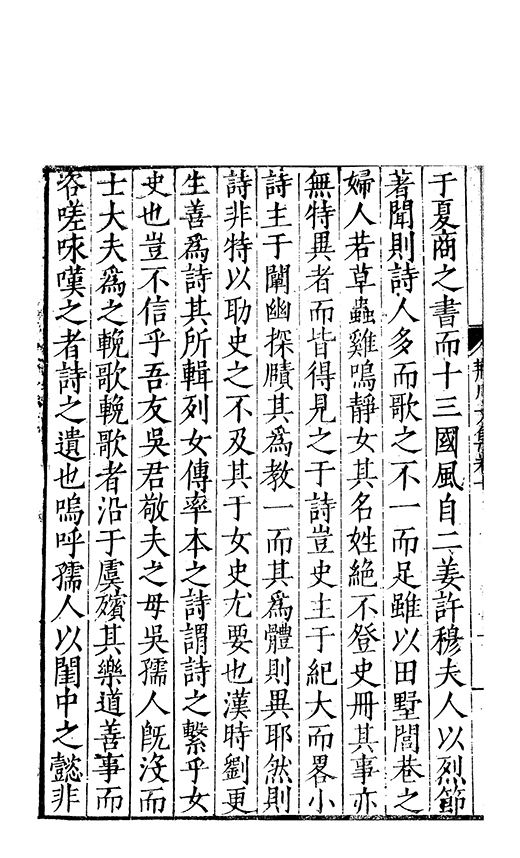 于夏商之書而十三國風自二姜許穆夫人以烈節
著聞則詩人多而歌之不一而足雖以田墅閭巷之
婦人若草蟲雞鳴靜女其名姓絶不登史冊其事亦
無特異者而皆得見之于詩豈史主于紀大而畧小
詩主于闡幽探賾其爲教一而其爲體則異耶然則
詩非特以助史之不及其于女史尤要也漢時劉更
生善爲詩其所輯列女傳率本之詩謂詩之繫乎女
史也豈不信乎吾友吳君敬夫之母吳孺人旣沒而
士大夫爲之輓歌輓歌者沿于虞殯其樂道善事而
咨嗟咏嘆之者詩之遺也嗚呼孺人以閨中之懿非